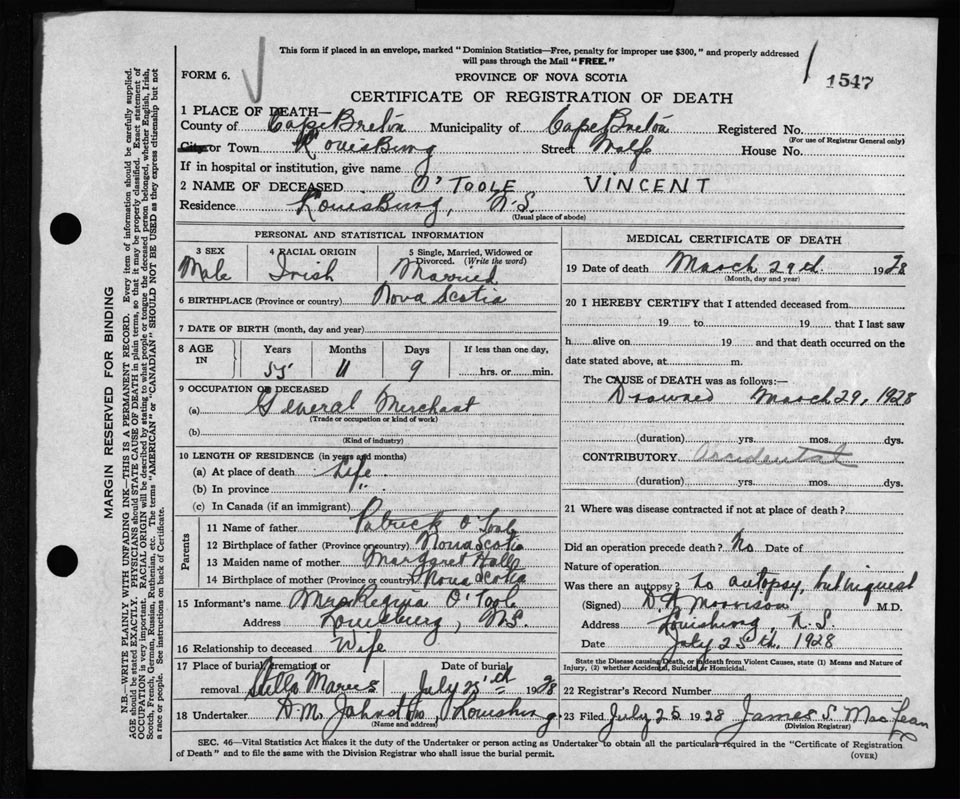 This form if placed in an envelope, marked "Dominion Statistics—Free, penalty for improper use $300," and properly addressed
will pass through the Mail "FREE."
FORM 6.
PROVINCE OF NOVA SCOTIA
1547
CERTIFICATE OF REGISTRATION OF DEATH
1 PLACE OF DEATH—
County of Cape Breton Municipality of Cape Breton Registered No.
(For use of Registrar General only)
City or Town Louisburg Street Wolfe House No.
If in hospital or institution, give name
2 NAME OF DECEASED O'TOOLE VINCENT
Residence Louisburg, N.S.
(Usual place of abode)
PERSONAL AND STATISTICAL INFORMATION
3 SEX 4 RACIAL ORIGIN 5 Single, Married, Widowed or Divorced. (Write the word)
Male Irish Married
6 BIRTHPLACE (Province or country) Nova Scotia
7 DATE OF BIRTH (month, day and year)
8 AGE IN Years Months Days If less than one day,
55 11 9 hrs. or min.
9 OCCUPATION OF DECEASED
(a) General Merchant
(Trade or occupation or kind of work)
(b)
(Kind of industry)
10 LENGTH OF RESIDENCE (in years and months)
(a) At place of death Life
(b) In province "
(c) In Canada (if an immigrant)
Parents
11 Name of father Patrick O'Toole
12 Birthplace of father (Province or country) Nova Scotia
13 Maiden name of mother Margaret Hall
14 Birthplace of mother (Province or country) Nova Scotia
15 Informant's name Mrs Regina O'Toole
Address Louisburg, N.S.
16 Relationship to deceased Wife
17 Place of burial, cremation or removal Stella Maris Date of burial July 25th 1928
18 Undertaker D.M. Johnston, Louisburg
(Name and address)
MEDICAL CERTIFICATE OF DEATH
19 Date of death March 29th. 1928
(Month, day and year)
20 I HEREBY CERTIFY that I attended deceased from
19 to 19 that I last saw
h alive on 19 and that death occurred on the
date stated above, at m.
The CAUSE of DEATH was as follows:—
Drowned March 29, 1928
(duration) yrs. mos. dys.
CONTRIBUTORY Accidental
(duration) yrs. mos. dys.
21 Where was disease contracted if not at place of death?
Did an operation precede death? No Date of
Nature of operation
Was there an autopsy? No autopsy, but inquest
(Signed) Morrison M.D.
Address Louisburg, N.S.
Date July 25th, 1928
State the Disease causing Death, or in death from Violent Causes, state (1) Means and Nature of
Injury, (2) whether Accidental, Suicidal or Homicidal.
22 Registrar's Record Number
23 Filed July 25 1928 James S. MacLean
(Division Registrar)
SEC. 46—Vital Statistics Act makes it the duty of the Undertaker or person acting as Undertaker to obtain all the particulars required in the "Certificate of Registration
of Death" and to file the same with the Division Registrar who shall issue the burial permit.
(OVER)
MARGIN RESERVED FOR BINDING
N.B.—WRITE PLAINLY WITH UNFADING INK—THIS IS A PERMANENT RECORD. Every item of information should be carefully supplied.
AGE should be stated EXACTLY. PHYSICIANS should STATE CAUSE OF DEATH in plain terms, so that it may be properly classified. Exact statement of
OCCUPATION is very important. RACIAL ORIGIN will be described by stating to what people or tongue the deceased person belonged, whether English, Irish,
Scotch, French, German, Russian, Ruthenian, etc. The terms "AMERICAN" or "CANADIAN" SHOULD NOT BE USED as they express citizenship but not
a race or people. See instructions on back of Certificate.